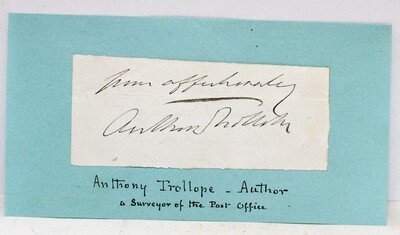 yours affectionately
Anthony Trollope
Anthony Trollope - Author
a Surveyor of the Post Office